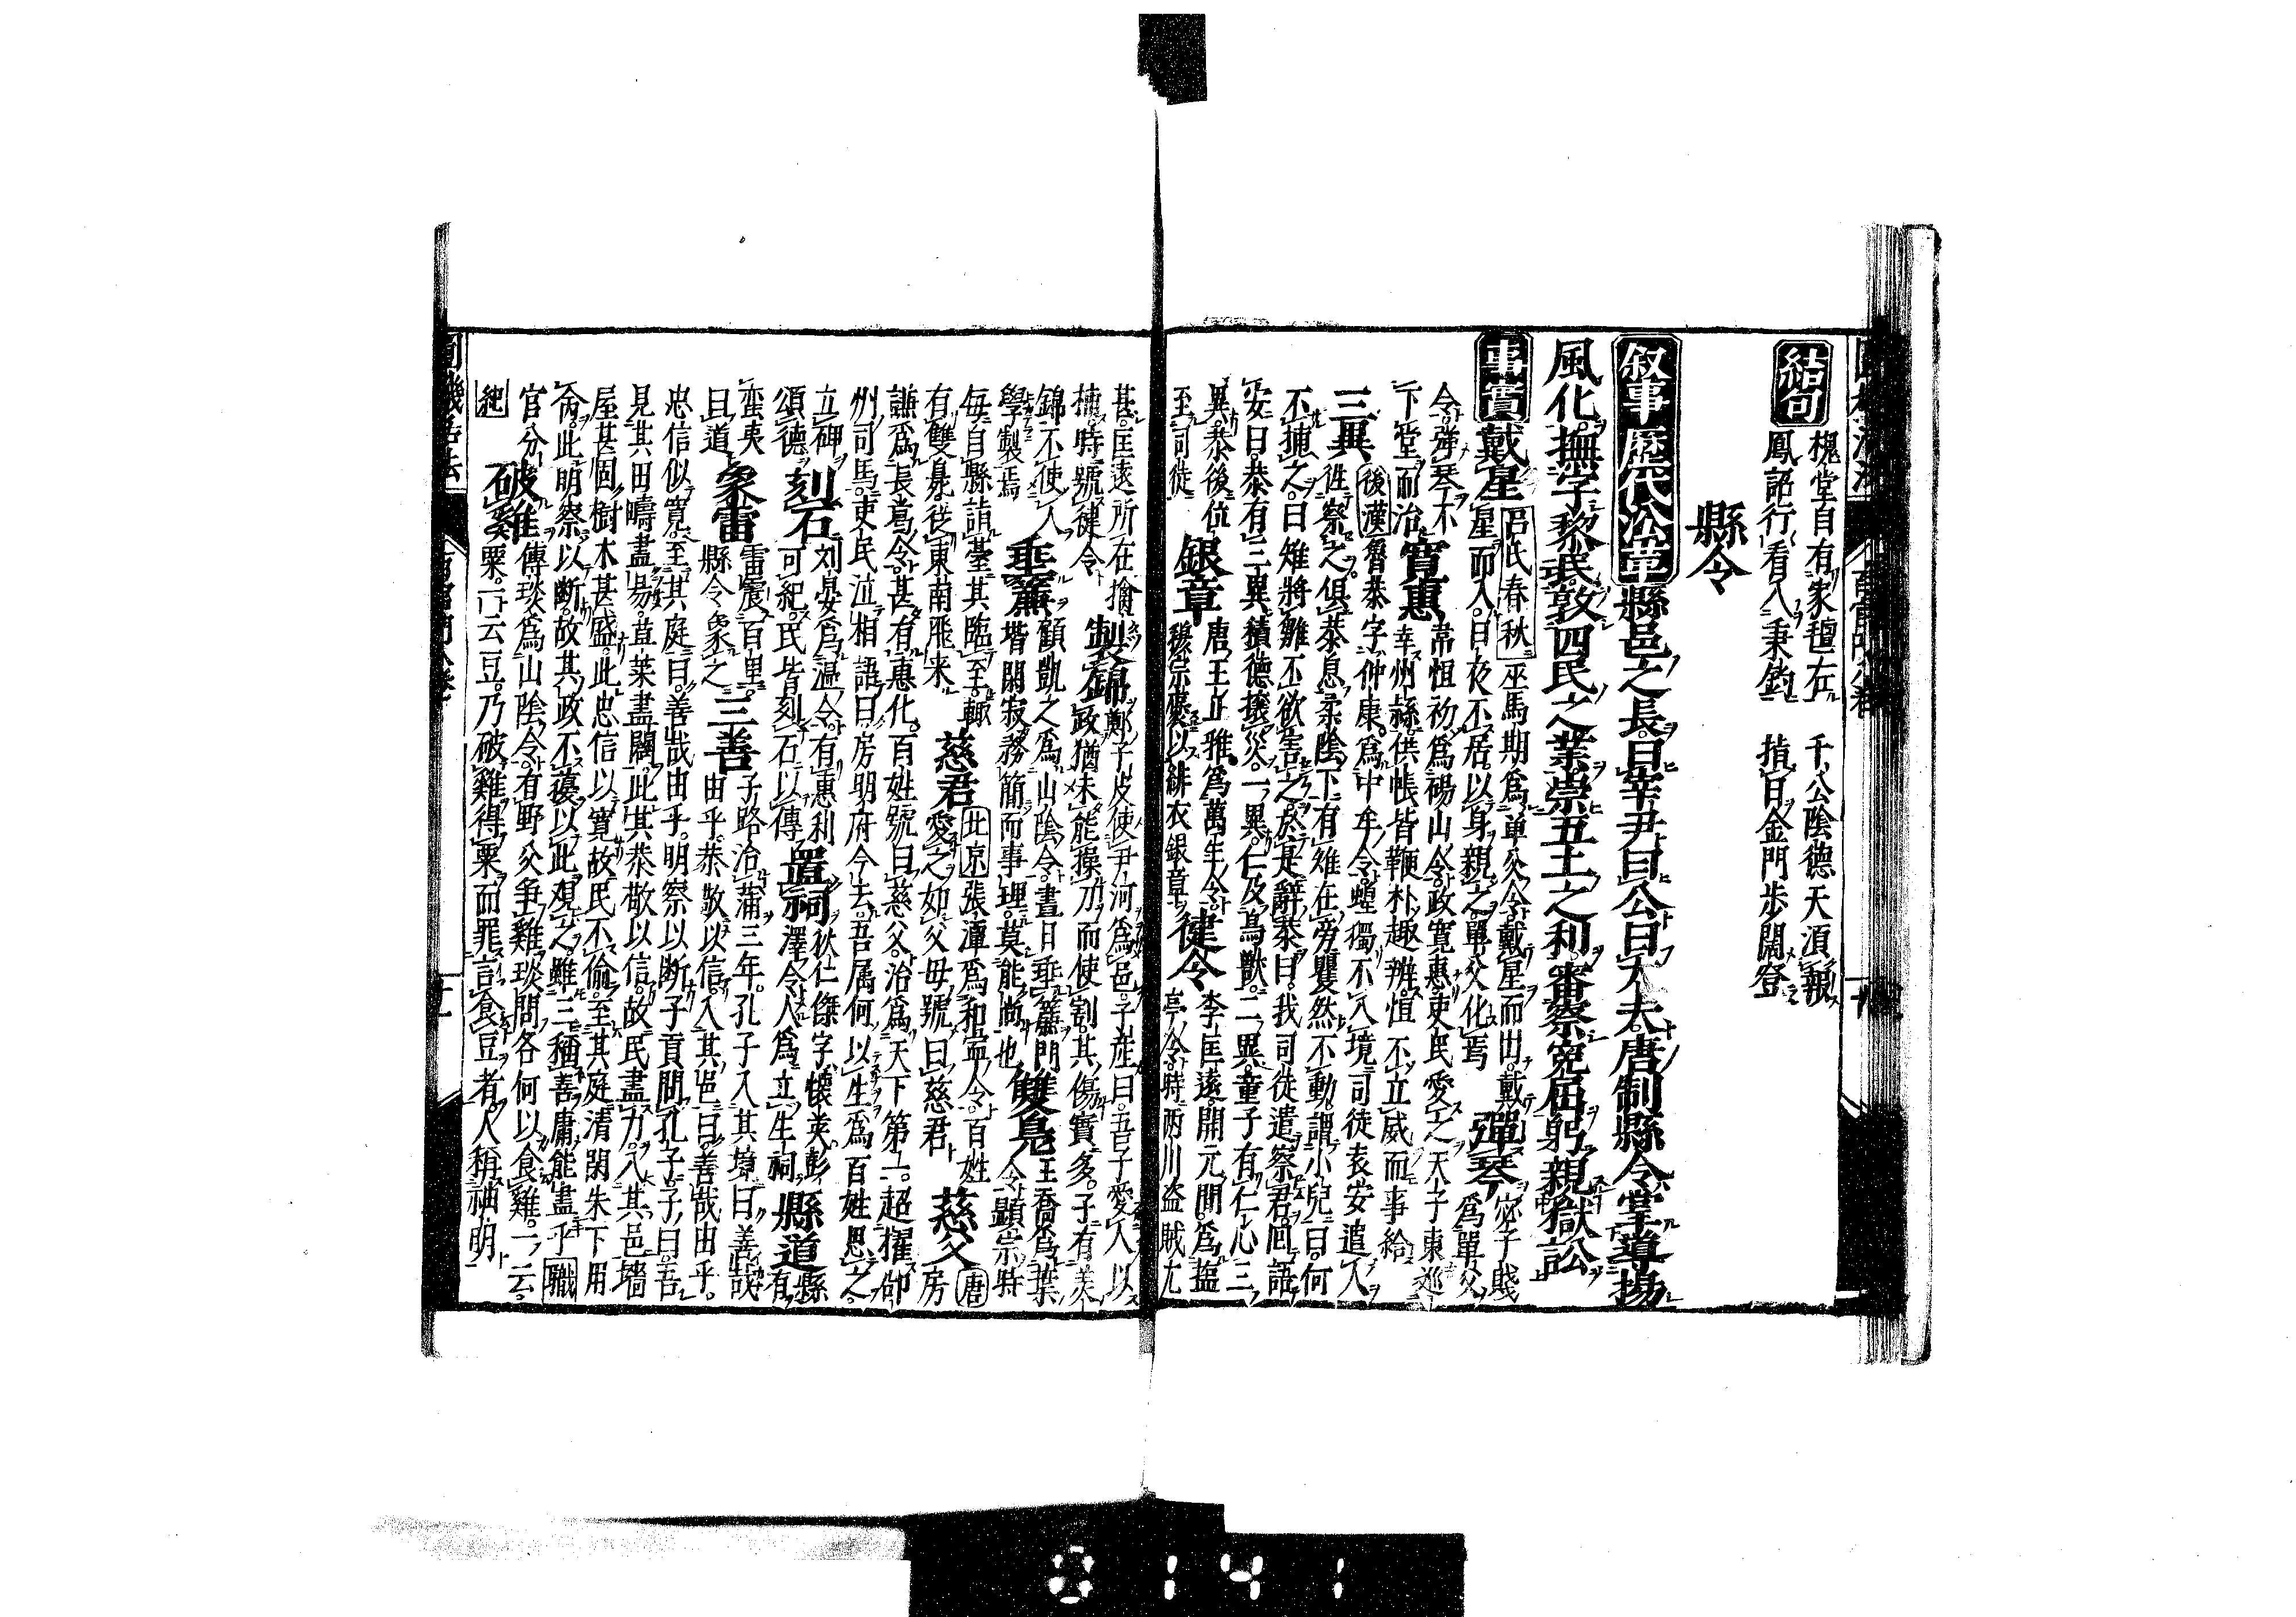 結句
槐堂自有家氊在
千公陰德天須報
鳳詔行看入秉鈞
指日金門步闊登
縣令
叙事 歷代沿革 縣邑之長曰宰尹曰公曰大夫唐制縣令掌導揚
風化撫字黎氓敦四民之業崇五土之利審察寃屈躬親獄訟
事實 戴星 呂氏春秋 巫馬期為單父令戴星而出戴
星而入日夜不居以身親之單父化焉 彈琴 宓子賤為單父
令弹琴不下堂而治 寬惠 常怛初為碭山令政寬惠吏民愛之天子東巡
幸州縣供帳皆鞭朴趣辨恒不立威而事給
三異 後漢 魯恭字仲康為中牟令蝗獨不入境司徒袁安遣人
徃察之俱恭息柔陰下有雉在旁瞿然不動謂小兒曰何
不捕之曰雉將雛不欲害之於是辭恭曰我司徒遣察君囘語
安曰恭有三異積德攘災一異仁及鳥獸二異童子有仁心三
異恭後位至司徒 銀章 唐王正雅為萬年令穆宗褒以緋衣銀章 健令 李匡遠開元間為塩亭令時两川盗賊尤
甚匡遠所在擒捕時號健令 製錦 鄭子皮使尹河為邑子産曰吾子愛人以
政猶未能操刀而使割其傷實多子有美
錦不使人學製焉 垂簾 顧凱之為山陰令晝日垂簾門
堦閑寂務簡而事理莫能尚也 雙鳧 王喬為葉令顯宗時
每自縣詣臺其臨至輙有雙鳧從東南飛来 慈君 北京 張潭為和寧令百姓
愛之如父母號曰慈君 慈父 唐 房
謙為長葛令甚有惠化百姓號曰慈父治為天下第一超擢鄀
州司馬吏民泣相語曰房明府今去吾属何以生為百姓思之
立碑頌德 刻石 刘晏為温令有惠利可紀民皆刻石以傳 置祠 狄仁傑字懷英彭澤令人為立生祠 縣道 縣有
蛮夷曰道 象雷 雷震百里縣令象之 三善 子路治蒲三年孔子入其境曰善哉
由乎恭敬以信入其邑曰善哉由乎
忠信似寬至其庭曰善哉由乎明察以断子貢問孔子子曰吾
見其田疇盡易草莱盡闢此其恭敬以信故民盡力入其邑墻
屋甚固樹木甚盛此忠信以寬故民不偷至其庭清閑朱下用
命此明察以断故其政不擾以此观之雖三稱善庸能盡乎 職
官分紀 破雞 傳琰為山陰令有野父爭雞琰問各何以食雞一云
粟一云豆乃破雞得粟而罪言食豆者人稱神明